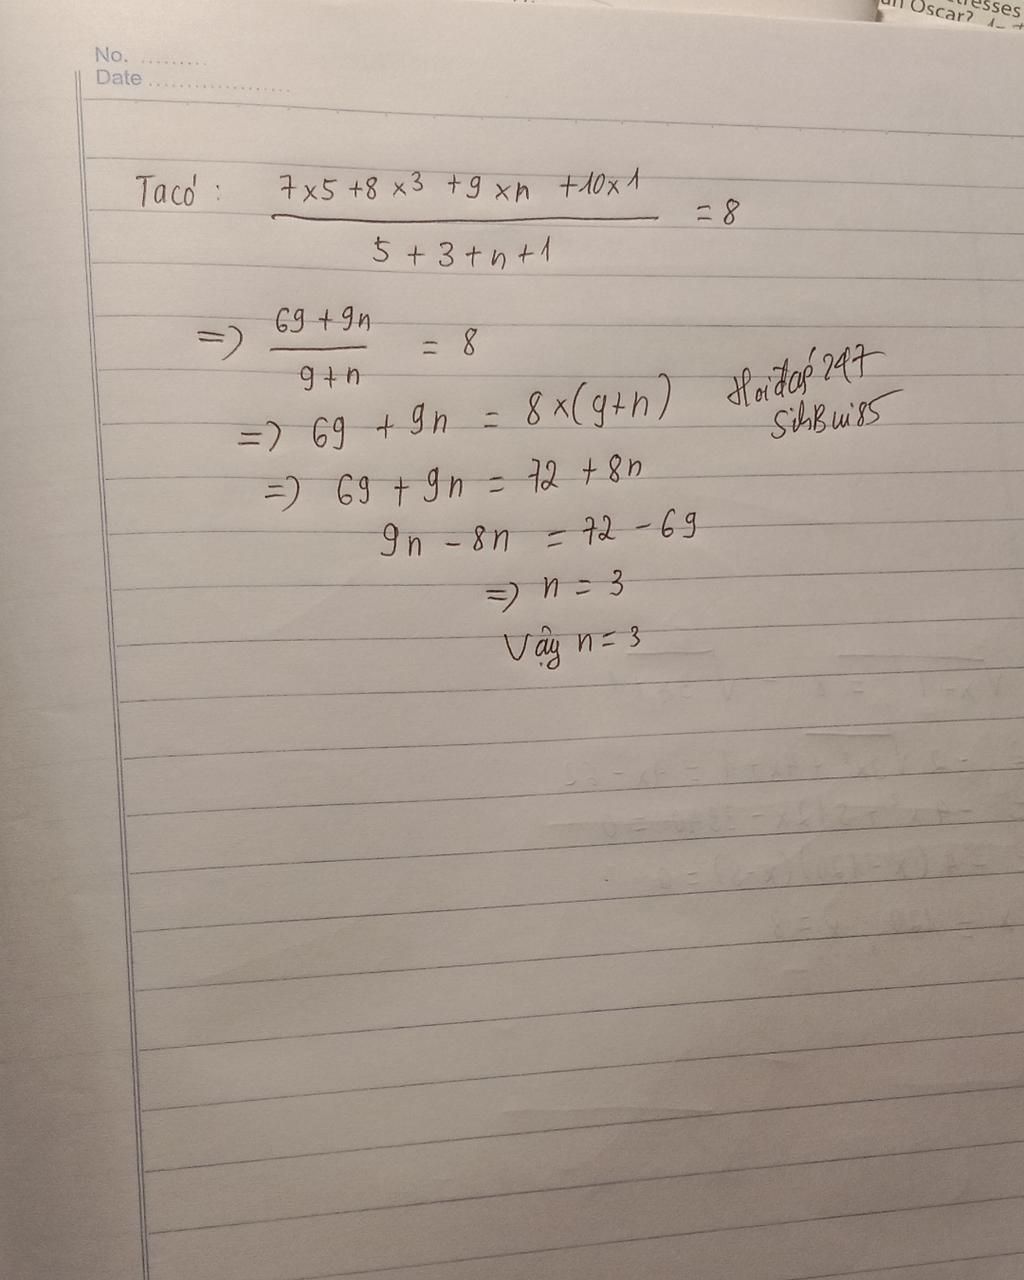 tresses
an Oscar?
No. .........
Date ..................
Ta có : (7x5 +8 x3 +9 xn +10x1)/(5 + 3 + n + 1) = 8
=> (69 + 9n)/(9 + n) = 8
=> 69 + 9n = 8 x (9+n)
Hoi đáp 247
=> 69 + 9n = 72 + 8n
9n - 8n = 72 - 69
=> n = 3
Vậy n = 3